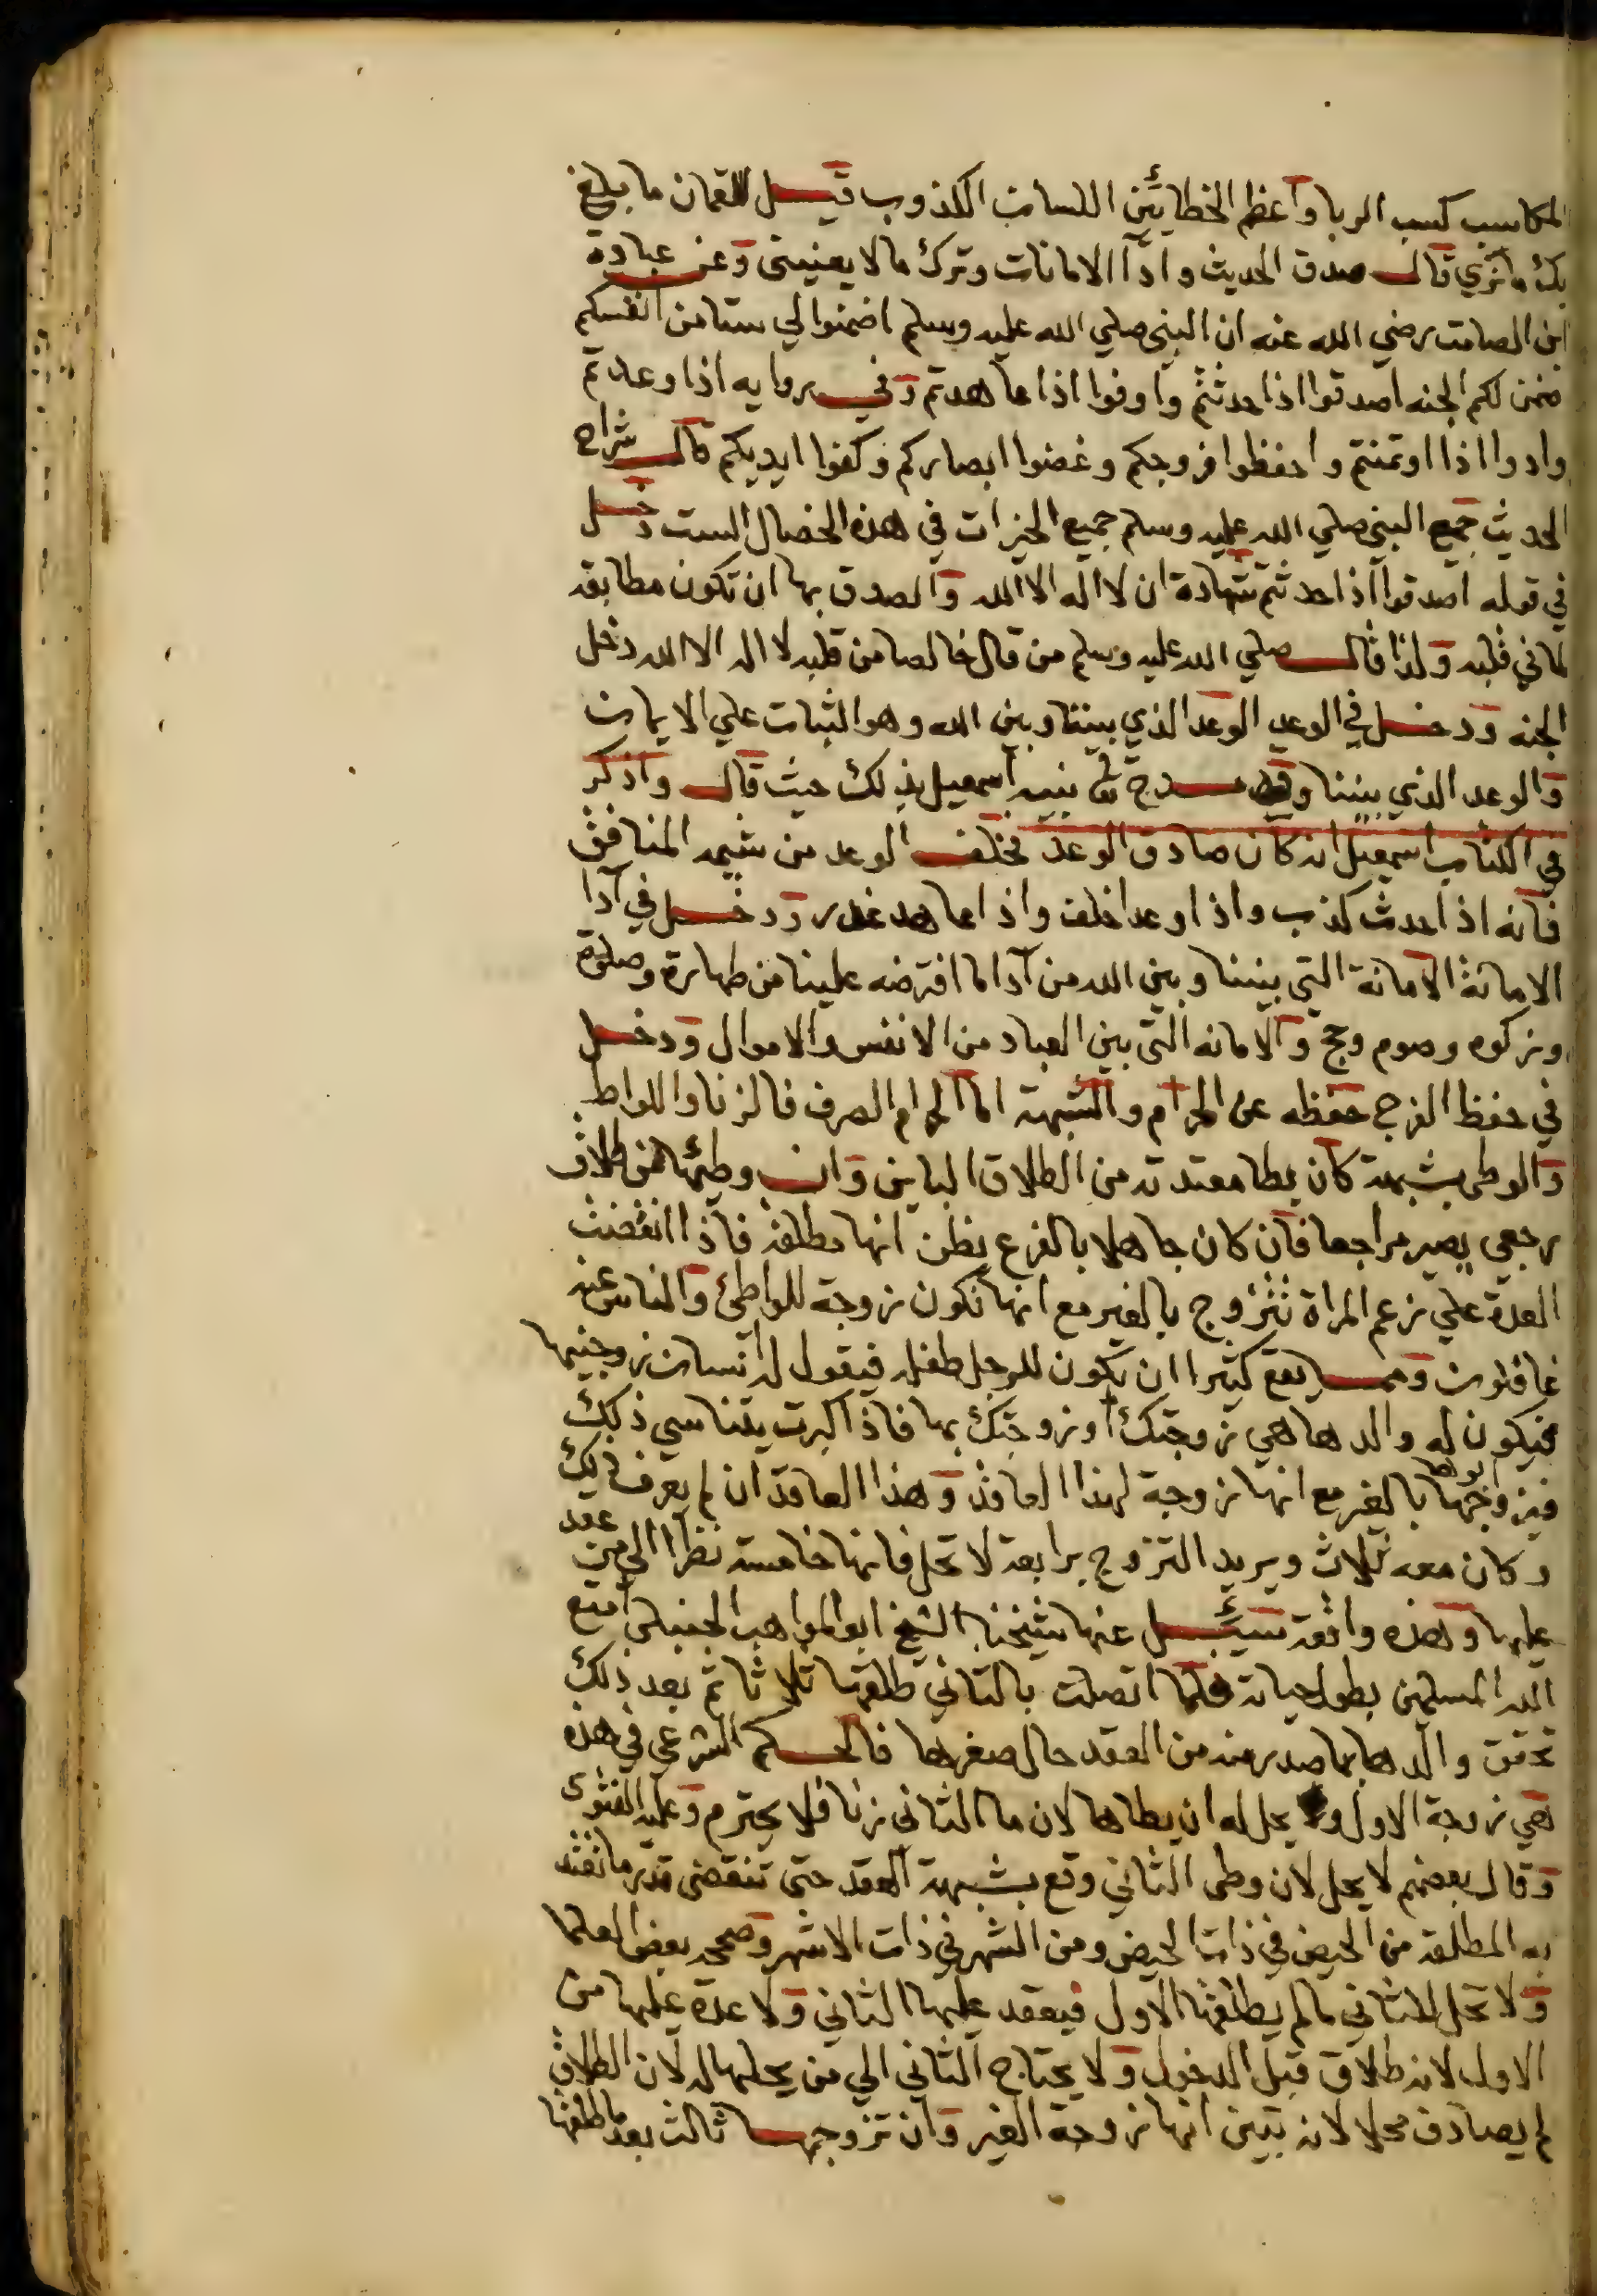 المكاسب كسب الربا واعظم الخطائين اللسان الكذوب قيل للقمان ما بلغ
بك ما نري قال صدق الحديث وادآ الامانات وترك ما لا يعنيني وعن عبادة
ابن الصامت رضي الله عنه ان النبي صلي الله عليه وسلم اضمنوا لي ستا من انفسكم
اضمن لكم الجنه اصدقوا اذا حدثتم واوفوا اذا عاهدتم وفي روايه اذا وعدتم
وادوا اذا اوتمنتم واحفظوا فروجكم وغضوا ابصاركم وكفوا ايديكم قال شراح
الحديث جمع النبي صلي الله عليه وسلم جميع الخيرات في هذه الخصال الست دخل
في قوله اصدقوا اذا حدثتم شهادة ان لا اله الا الله والصدق بها ان تكون مطابقة
لما في قلبه ولذا قال صلي الله عليه وسلم من قال خالصا من قلبه لا اله الا الله دخل
الجنه ودخل في الوعد الوعد الذي بيننا وبين الله وهو الثبات علي الايمان
والوعد الذي بيننا وقد مدح نبيه اسمعيل بذلك حيث قال واذكر
في الكتاب اسمعيل انه كان صادق الوعد فخلف الوعد من شيمة المنافق
فانه اذا حدث كذب واذا وعد اخلف واذا عاهد غدر ودخل في آدا
الامانة الامانة التي بيننا وبين الله من آدا ما افترضه علينا من طهارة وصلوة
وزكوه وصوم وحج والامانه التي بين العباد من الانفس والاموال ودخل
في حفظ الفرج حفظه عن الحرام والشبهة اما الحرام الصرف فالزنا واللواط
والوطي بشبهة كان يطا معتدته من الطلاق الباين وان وطئها من طلاق
رجعي يصير مراجعا فان كان جاهلا بالفرع يظن انها مطلقة فاذا انقضت
العدة علي زعم المراة تتزوج بالغير مع انها تكون زوجة للواطئ والناس عنه
غافلون ومما يقع كثيرا ان يكون للرجل طفله فيقول له انسان زوجنيها
فيكون له والدها هي زوجتك او زوجتك بها فاذا كبرت يتناسي ذلك
فيزوجها ابوها بالغير مع انها زوجة لهذا العاقد وهذا العاقد ان لم يعرف ذلك
وكان معه ثلاث ويريد التزوج برابعة لا تحل فانها خامسة نظرا الي من عقد
عليها وهذه واقعة سئل عنها شيخنا الشيخ ابو المواهب الحنبلي امتع
الله المسلمين بطول حياته فلما اتصلت بالثاني طلقها ثلاثا ثم بعد ذلك
تحقق والدها بما صدر منه من العقد حال صغرها فالحكم الشرعي في هذه
هي زوجة الاول و يحل له ان يطاها لان ما الثاني زنا فلا يحترم وعليه الفتوى
وقال بعضهم لا يحل لان وطي الثاني وقع بشبهة العقد حتي تنقضي قدر ما تعتد
به المطلقة من الحيض في ذات الحيض ومن الشهر في ذات الاشهر وصححه بعض العلما
ولا تحل للثاني ما لم يطلقها الاول فيعقد عليها الثاني ولا عدة عليها من
الاول لانه طلاق قبل الدخول ولا يحتاج الثاني الي من يحلها له لان الطلاق
لم يصادف محلا لانه تبين انها زوجة الغير وان تزوجها ثالث بعد ما طلقها